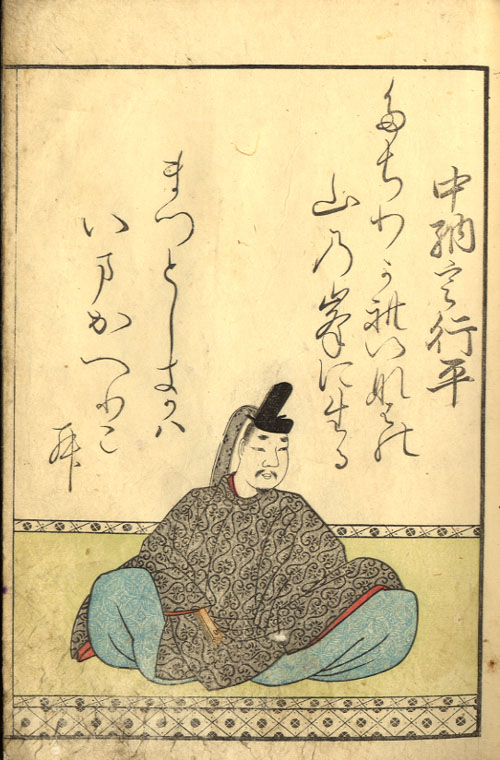 中納言行平
たちわかれいなはの
山乃峯に生る
まつとしきかハ
いまかへりこ
む